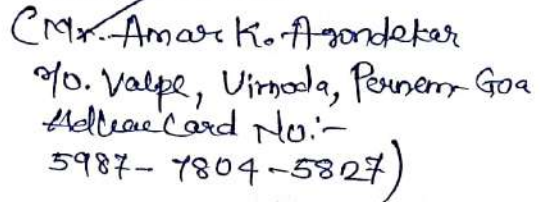 (Mr. Amar K. Agondekar
r/o. Valpe, Virnoda, Pernem-Goa
Card No.:-
5987-7804-5827)